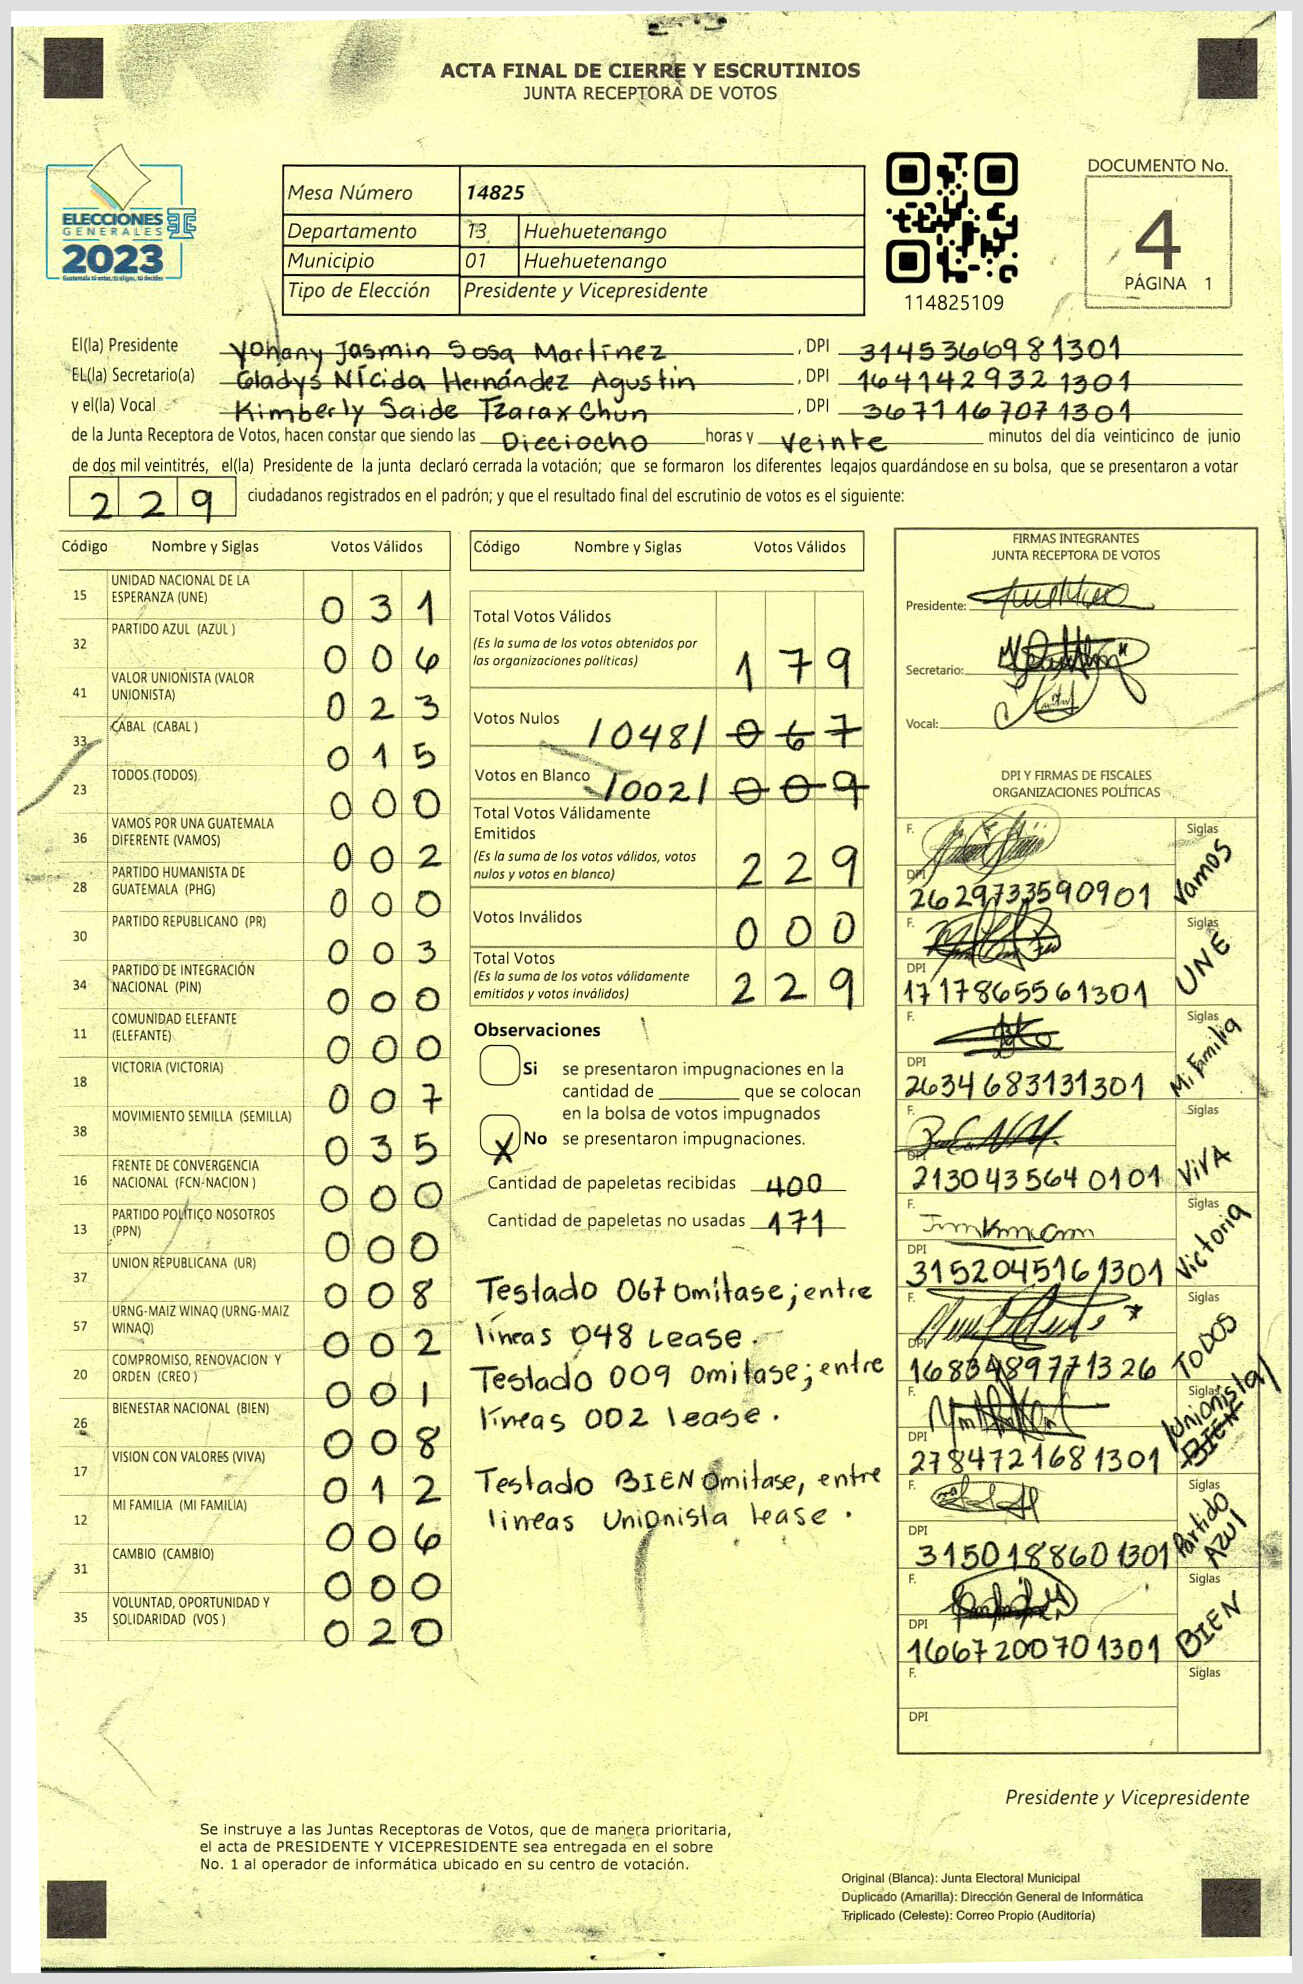 ACTA FINAL DE CIERRE Y ESCRUTINIOS
JUNTA RECEPTORA DE VOTOS
ELECCIONES
GENERALES
2023
Mesa Número 14825
Departamento 13 Huehuetenango
Municipio 01 Huehuetenango
Tipo de Elección Presidente y Vicepresidente
114825109
DOCUMENTO No.
4
PÁGINA 1
El(la) Presidente Yohany Jasmin Sosa Martínez, DPI 3145366981301
EL(la) Secretario(a) Gladys Nícida Hernández Agustin, DPI 1641429321301
y el(la) Vocal Kimberly Saide Tzarax Chun, DPI 3671167071301
de la Junta Receptora de Votos, hacen constar que siendo las Dieciocho horas y veinte minutos del día veinticinco de junio
de dos mil veintitrés, el(la) Presidente de la junta declaró cerrada la votación; que se formaron los diferentes legajos guardándose en su bolsa, que se presentaron a votar
229 ciudadanos registrados en el padrón; y que el resultado final del escrutinio de votos es el siguiente:
Código Nombre y Siglas Votos Válidos
15 UNIDAD NACIONAL DE LA ESPERANZA (UNE) 031
32 PARTIDO AZUL (AZUL ) 006
41 VALOR UNIONISTA (VALOR UNIONISTA) 023
33 CABAL (CABAL ) 015
23 TODOS (TODOS) 000
36 VAMOS POR UNA GUATEMALA DIFERENTE (VAMOS) 002
28 PARTIDO HUMANISTA DE GUATEMALA (PHG) 000
30 PARTIDO REPUBLICANO (PR) 003
34 PARTIDO DE INTEGRACIÓN NACIONAL (PIN) 000
11 COMUNIDAD ELEFANTE (ELEFANTE) 000
18 VICTORIA (VICTORIA) 007
38 MOVIMIENTO SEMILLA (SEMILLA) 035
16 FRENTE DE CONVERGENCIA NACIONAL (FCN-NACION ) 000
13 PARTIDO POLÍTICO NOSOTROS (PPN) 000
37 UNION REPUBLICANA (UR) 008
57 URNG-MAIZ WINAQ (URNG-MAIZ WINAQ) 002
20 COMPROMISO, RENOVACION Y ORDEN (CREO ) 001
26 BIENESTAR NACIONAL (BIEN) 008
17 VISION CON VALORES (VIVA) 012
12 MI FAMILIA (MI FAMILIA) 006
31 CAMBIO (CAMBIO) 000
35 VOLUNTAD, OPORTUNIDAD Y SOLIDARIDAD (VOS ) 020
Código Nombre y Siglas Votos Válidos
Total Votos Válidos
(Es la suma de los votos obtenidos por las organizaciones políticas) 179
Votos Nulos /048/ 067
Votos en Blanco /002/ 009
Total Votos Válidamente Emitidos
(Es la suma de los votos válidos, votos nulos y votos en blanco) 229
Votos Inválidos 000
Total Votos
(Es la suma de los votos válidamente emitidos y votos inválidos) 229
Observaciones
Si se presentaron impugnaciones en la
cantidad de ________ que se colocan
en la bolsa de votos impugnados
X No se presentaron impugnaciones.
Cantidad de papeletas recibidas 400
Cantidad de papeletas no usadas 171
Testado 067 omitase; entre
líneas 048 Lease.
Testado 009 omitase; entre
líneas 002 lease.
Testado BIEN omitase, entre
lineas Unionista lease.
FIRMAS INTEGRANTES
JUNTA RECEPTORA DE VOTOS
Presidente:
Secretario:
Vocal:
DPI Y FIRMAS DE FISCALES
ORGANIZACIONES POLÍTICAS
F. Siglas Vamos
DPI 2629733590901
F. Siglas UNE
DPI 1717865561301
F. Siglas Mi Familia
DPI 2634683131301
F. Siglas ViVA
DPI 2130435640101
F. Siglas Victoria
DPI 3152045161301
F. Siglas TODOS
DPI 1683489771326
F. Siglas /Unionista/ BIEN
DPI 2784721681301
F. Siglas Partido AZUl
DPI 3150188601301
F. Siglas BIEN
DPI 1667200701301
F. Siglas
DPI
Presidente y Vicepresidente
Se instruye a las Juntas Receptoras de Votos, que de manera prioritaria,
el acta de PRESIDENTE Y VICEPRESIDENTE sea entregada en el sobre
No. 1 al operador de informática ubicado en su centro de votación.
Original (Blanca): Junta Electoral Municipal
Duplicado (Amarilla): Dirección General de Informática
Triplicado (Celeste): Correo Propio (Auditoría)